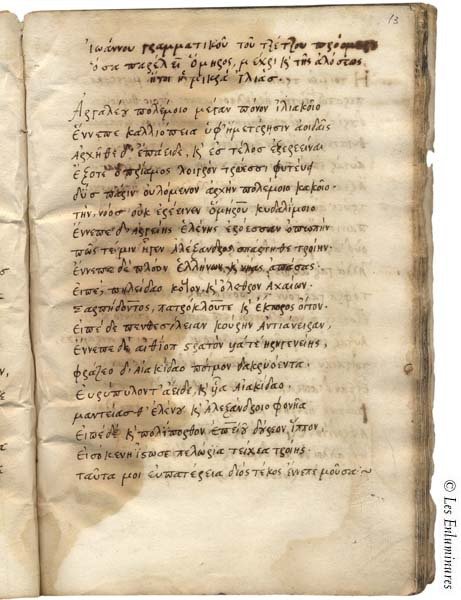 Ἰωάννου γραμματικοῦ τοῦ τζέτζου
ὅσα παρέλειπεν Ὅμηρος, μέχρι κ τῆς ἁλώσεως
ἤτοι ἡ μικρὰ Ἰλιάς.
Ἀργαλέου πολέμοιο μέγαν πόνον ἰλιακοῖο
ἔννεπε καλλιόπεια ὑφ' ἡμετέρησιν ἀοιδαῖς
ἀρχῆθε δ' ἐπάειδε, κ ἐς τέλος ἐξερέεινε
ἐξότε δ πρίαμος λοιγὸν τρώεσσι φύτευσε
δύσπαριν οὐλόμενον ἀρχὴν πολέμοιο κακοῖο·
τὴν νόος οὐκ ἐξέεινεν ὁμήρου κυδαλίμοιο
ἔννεπε δ' ἀργείης ἑλένης ἐρόεσσαν ὀπωπὴν
πῶς τέ μιν ἦγεν ἀλέξανδρος σπάρτηθε τροίην·
ἔννεπε δὲ πλόον ἑλλήνων, κ νῆας ἁπάσας·
εἰπὲ, πηλείδαο χόλον, κ ὄλεθρον ἀχαιῶν·
σαρπήδοντος, πατρόκλου τε κ ἕκτορος οἶτον·
εἰπὲ δὲ πενθεσίλειαν κούρην ἀντιάνειραν,
ἔννεπε δὲ αἰθιόπων στρατὸν ἠριγενείης,
φράζεο δ' αἰακίδαο πότμον δακρυόεντα·
εὐρύπυλόν τ' ἄειδε, κ αἰακίδαο,
μαντείας θ' ἑλένου κ ἀλεξάνδροιο φονῆα
εἰπὲ δὲ κ πολίπορθον ἐπειοῦ δούρεον ἵππον,
εἰσοκεν ἤϊστωσε πελώρια τείχεα τροίης·
ταῦτά μοι εὐπατέρεια διὸς τέκος ἔννεπε μοῦσα
13
© Les Enluminures